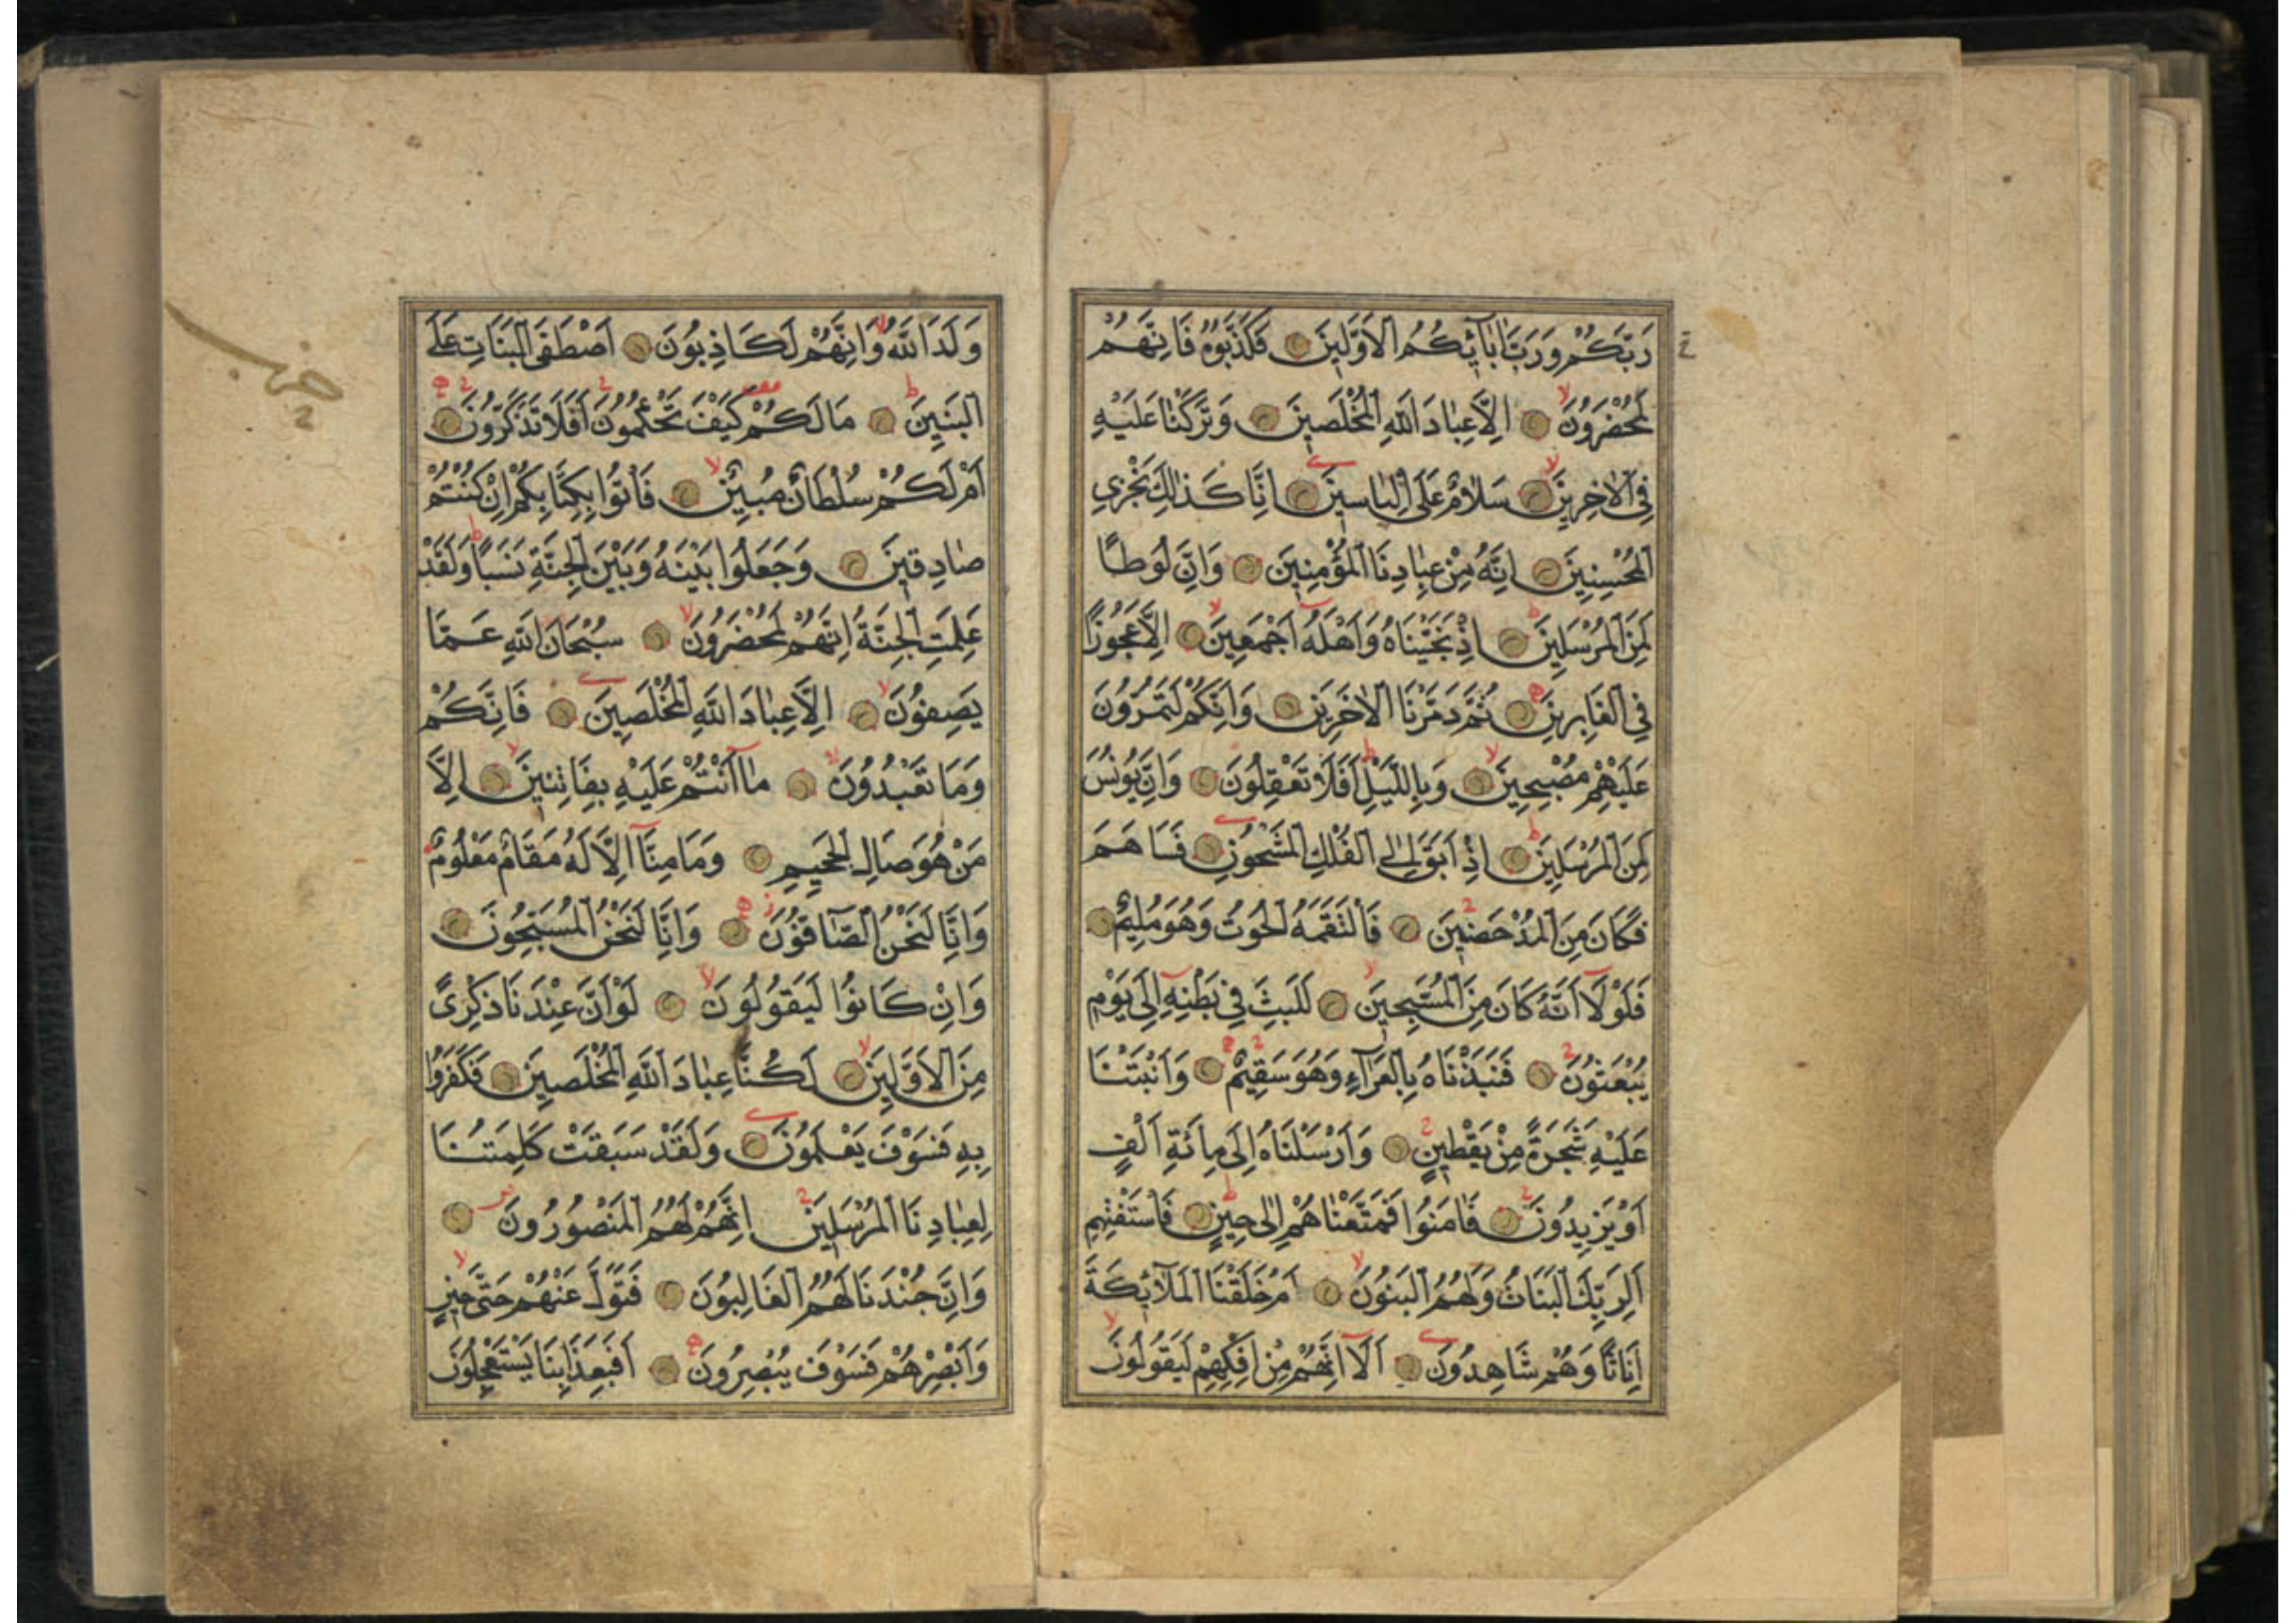 رَبَّكُمْ وَرَبَّ اٰبَآئِكُمُ الْاَوَّلِينَ فَكَذَّبُوهُ فَاِنَّهُمْ
لَمُحْضَرُونَ اِلَّا عِبَادَ اللّٰهِ الْمُخْلَصِينَ وَتَرَكْنَا عَلَيْهِ
فِي الْاٰخِرِينَ سَلَامٌ عَلٰٓى اِلْيَاسِينَ اِنَّا كَذٰلِكَ نَجْزِي
الْمُحْسِنِينَ اِنَّهُ مِنْ عِبَادِنَا الْمُؤْمِنِينَ وَاِنَّ لُوطًا
لَمِنَ الْمُرْسَلِينَ اِذْ نَجَّيْنَاهُ وَاَهْلَهُٓ اَجْمَعِينَ اِلَّا عَجُوزًا
فِي الْغَابِرِينَ ثُمَّ دَمَّرْنَا الْاٰخَرِينَ وَاِنَّكُمْ لَتَمُرُّونَ
عَلَيْهِمْ مُصْبِحِينَ وَبِاللَّيْلِ اَفَلَا تَعْقِلُونَ وَاِنَّ يُونُسَ
لَمِنَ الْمُرْسَلِينَ اِذْ اَبَقَ اِلَى الْفُلْكِ الْمَشْحُونِ فَسَاهَمَ
فَكَانَ مِنَ الْمُدْحَضِينَ فَالْتَقَمَهُ الْحُوتُ وَهُوَ مُلِيمٌ
فَلَوْلَآ اَنَّهُ كَانَ مِنَ الْمُسَبِّحِينَ لَلَبِثَ فِي بَطْنِهِٓ اِلٰى يَوْمِ
يُبْعَثُونَ فَنَبَذْنَاهُ بِالْعَرَآءِ وَهُوَ سَقِيمٌ وَاَنْبَتْنَا
عَلَيْهِ شَجَرَةً مِنْ يَقْطِينٍ وَاَرْسَلْنَاهُ اِلٰى مِائَةِ اَلْفٍ
اَوْ يَزِيدُونَ فَاٰمَنُوا فَمَتَّعْنَاهُمْ اِلٰى حِينٍ فَاسْتَفْتِهِمْ
اَلِرَبِّكَ الْبَنَاتُ وَلَهُمُ الْبَنُونَ اَمْ خَلَقْنَا الْمَلَآئِكَةَ
اِنَاثًا وَهُمْ شَاهِدُونَ اَلَآ اِنَّهُمْ مِنْ اِفْكِهِمْ لَيَقُولُونَ
وَلَدَ اللّٰهُ وَاِنَّهُمْ لَكَاذِبُونَ اَصْطَفَى الْبَنَاتِ عَلَى
الْبَنِينَ مَا لَكُمْ كَيْفَ تَحْكُمُونَ اَفَلَا تَذَكَّرُونَ
اَمْ لَكُمْ سُلْطَانٌ مُبِينٌ فَأْتُوا بِكِتَابِكُمْ اِنْ كُنْتُمْ
صَادِقِينَ وَجَعَلُوا بَيْنَهُ وَبَيْنَ الْجِنَّةِ نَسَبًا وَلَقَدْ
عَلِمَتِ الْجِنَّةُ اِنَّهُمْ لَمُحْضَرُونَ سُبْحَانَ اللّٰهِ عَمَّا
يَصِفُونَ اِلَّا عِبَادَ اللّٰهِ الْمُخْلَصِينَ فَاِنَّكُمْ
وَمَا تَعْبُدُونَ مَآ اَنْتُمْ عَلَيْهِ بِفَاتِنِينَ اِلَّا
مَنْ هُوَ صَالِ الْجَحِيمِ وَمَا مِنَّآ اِلَّا لَهُ مَقَامٌ مَعْلُومٌ
وَاِنَّا لَنَحْنُ الصَّآفُّونَ وَاِنَّا لَنَحْنُ الْمُسَبِّحُونَ
وَاِنْ كَانُوا لَيَقُولُونَ لَوْ اَنَّ عِنْدَنَا ذِكْرًى
مِنَ الْاَوَّلِينَ لَكُنَّا عِبَادَ اللّٰهِ الْمُخْلَصِينَ فَكَفَرُوا
بِهِ فَسَوْفَ يَعْلَمُونَ وَلَقَدْ سَبَقَتْ كَلِمَتُنَا
لِعِبَادِنَا الْمُرْسَلِينَ اِنَّهُمْ لَهُمُ الْمَنْصُورُونَ
وَاِنَّ جُنْدَنَا لَهُمُ الْغَالِبُونَ فَتَوَلَّ عَنْهُمْ حَتّٰى حِينٍ
وَاَبْصِرْهُمْ فَسَوْفَ يُبْصِرُونَ اَفَبِعَذَابِنَا يَسْتَعْجِلُونَ
حزب